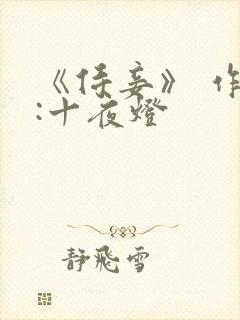 《侍妾》 作
:十夜燈
靜飛雪